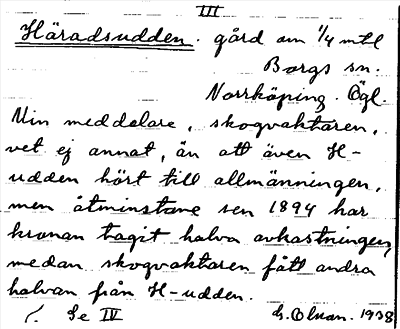 III
Häradsudden. gård om 1/4 mtl
Borgs sn.
Norrköping. Ögl.
Min meddelare, skogvaktaren,
vet ej annat, än att även H-
udden hört till allmänningen,
men åtminstone sen 1894 har
kronan tagit halva avkastningen,
medan skogvaktaren fått andra
halvan från H-udden.
Se IV
1938